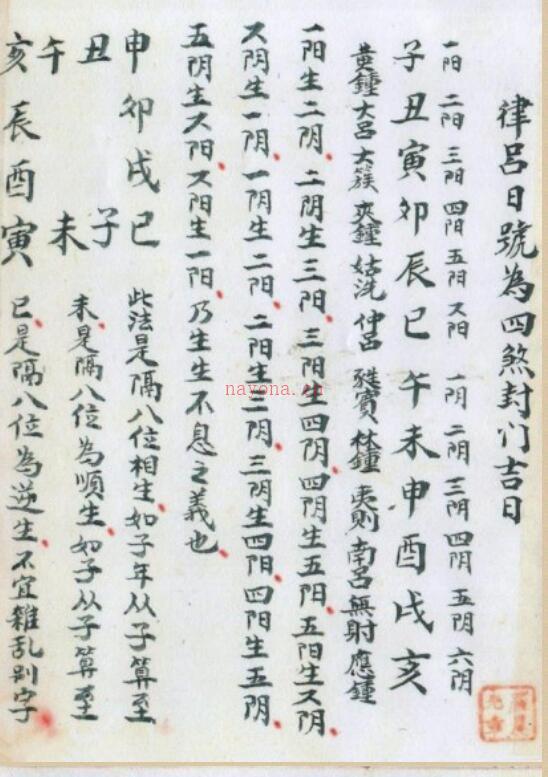 律呂日號為四煞封门吉日
一阳 二阳 三阳 四阳 五阳 六阳 一阴 二阴 三阴 四阴 五阴 六阴
子丑寅卯辰巳午未申酉戌亥
黄鐘 大呂 大簇 夾鐘 姑洗 仲呂 蕤賓 林鐘 夷則 南呂 無射 應鐘
一阳生二阴、二阴生三阳、三阳生四阴、四阴生五阳、五阳生六阴、
六阴生一阴、一阴生二阳、二阳生三阴、三阴生四阳、四阳生五阴、
五阴生六阳、六阳生一阳、乃生生不息之義也、
申卯戌巳
丑 子
午 未
亥辰酉寅
此法是隔八位相生、如子年从子算至
未、是隔八位為順生、如子从子算至
巳、是隔八位為逆生、不宜雜乱别字